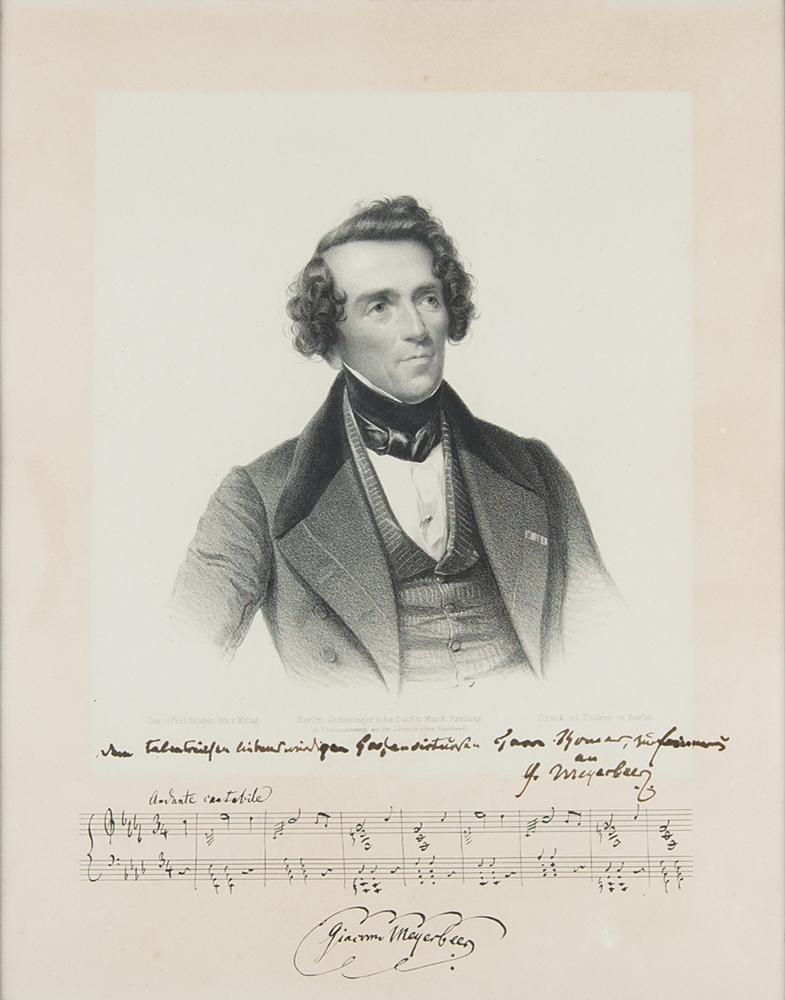 Gez. v. Prof. Krüger, lith. v.
Berlin, Schlesinger'sche Buch u. Musik Handlung
Druck v. L. Zöllner in Berlin.
dem talentreichen liebenswürdigen Herrn zur Erinnerung
an
G. Meyerbeer
Andante cantabile
3/4
3/4
Giacomo Meyerbeer